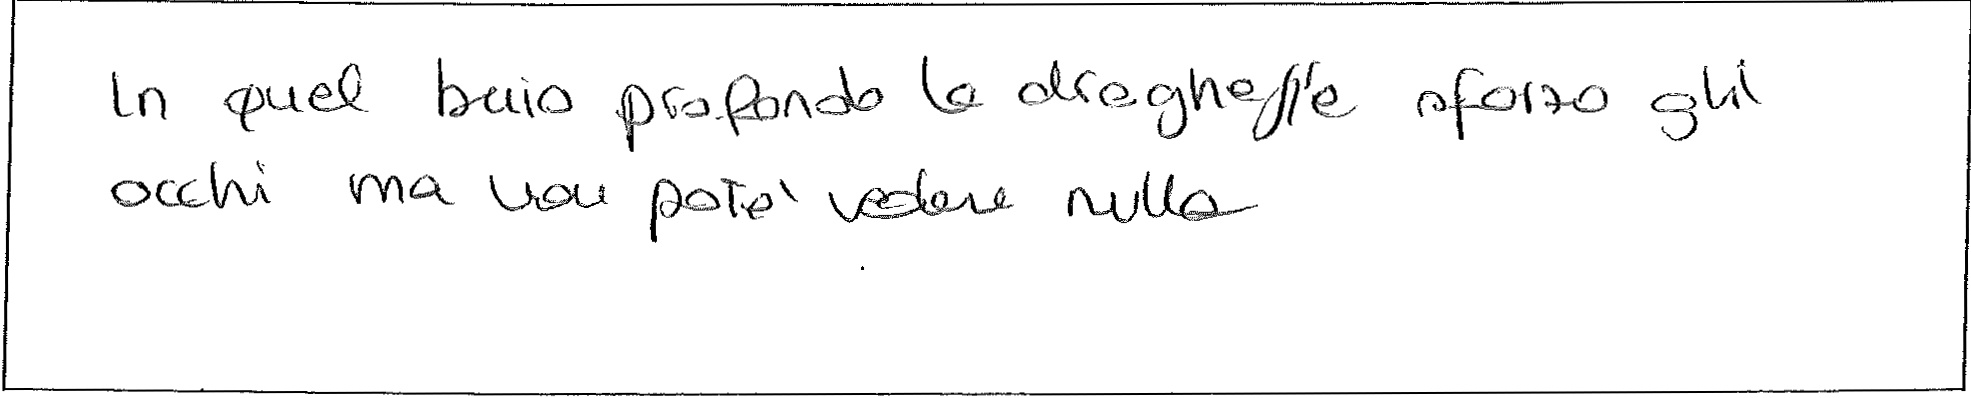 In quel buio profondo la draghessa sforzo gli
occhi ma non poté vedere nulla